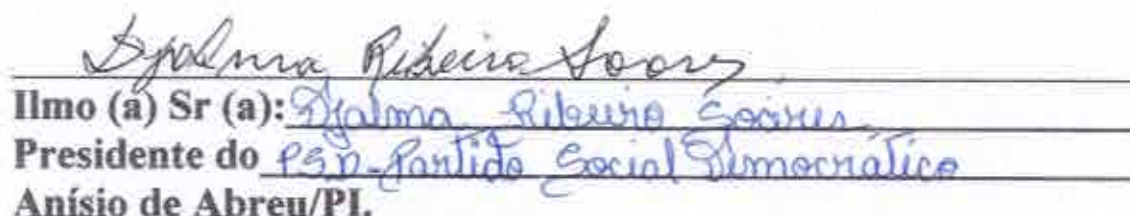 Djalma Ribeiro Soares
Ilmo (a) Sr (a): Djalma Ribeiro Soares
Presidente do PSD-Partido Social Democrático
Anísio de Abreu/PI.